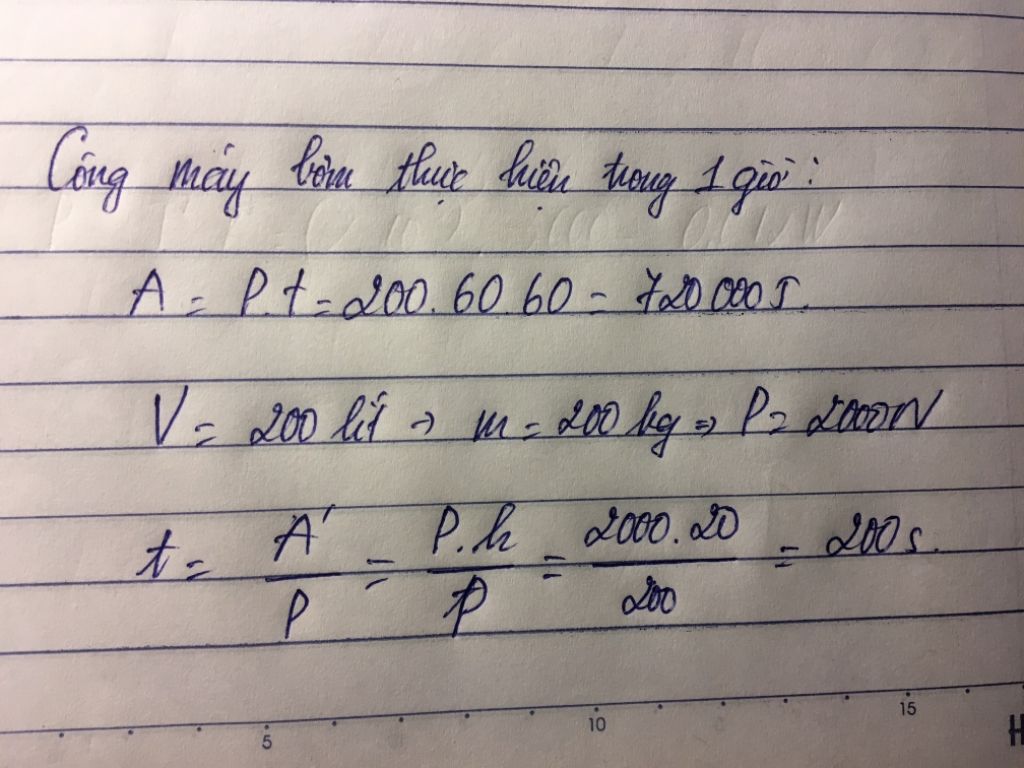 Công máy bơm thực hiện trong 1 giờ:
A = P.t = 200.60.60 = 720000J.
V = 200 lít → m = 200 kg ⇒ P = 2000N
t = A'/P = P.h/P = 2000.20/200 = 200s.
5 10 15
H